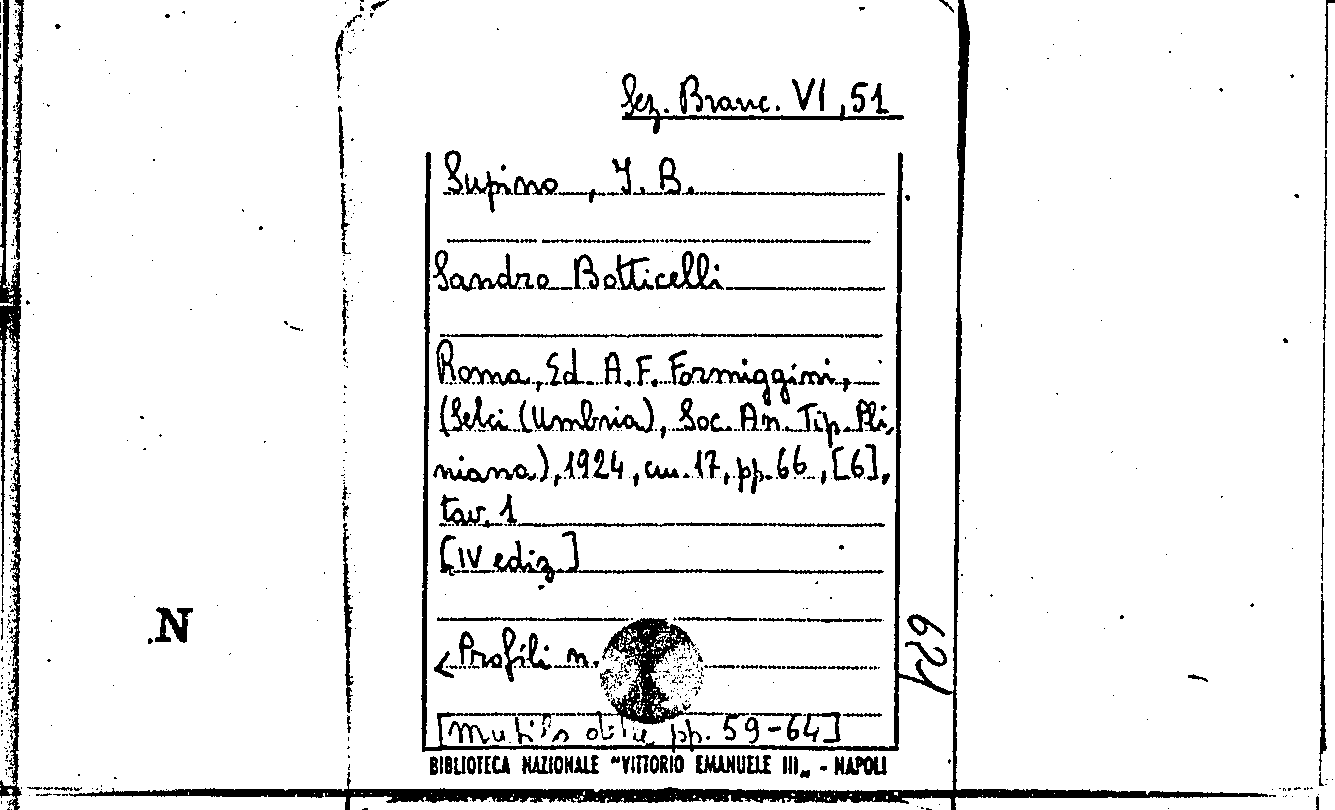 Sez. Branc. VI, 51
Supino, I. B.
Sandro Botticelli
Roma, Ed. A.F. Formiggini,
(Selci (Umbria), Soc. An. Tip. Pli,
niana), 1924, cm. 17, pp. 66, [6],
tav. 1
[IV ediz]
< Profili n.
[Mutilo delle pp. 59-64]
629
N
BIBLIOTECA NAZIONALE "VITTORIO EMANUELE III„ - NAPOLI